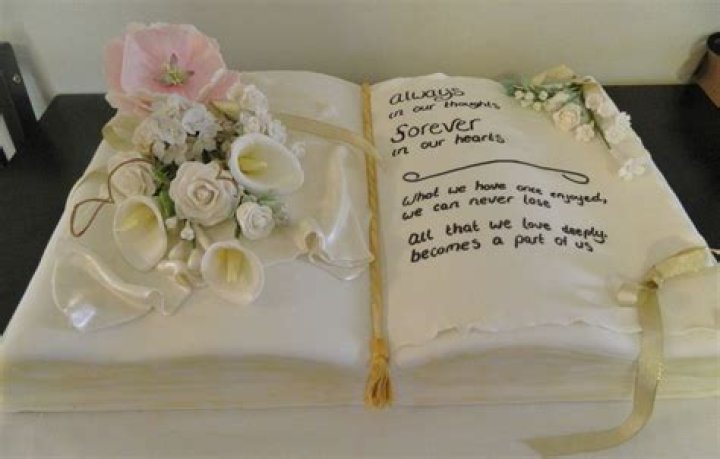 always
in our thoughts
forever
in our hearts
What we have once enjoyed,
we can never lose
all that we love deeply,
becomes a part of us